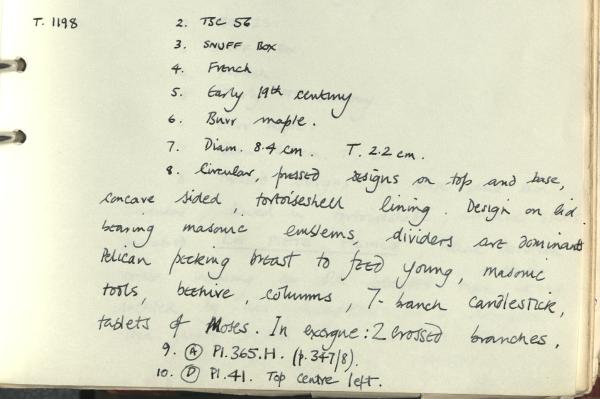 T. 1198 2. TSC 56
3. SNUFF BOX
4. French
5. Early 19th century
6. Burr maple.
7. Diam. 8.4 cm. T. 2.2 cm.
8. Circular, pressed designs on top and base,
concave sided, tortoiseshell lining. Design on lid
bearing masonic emblems, dividers are dominant
Pelican pecking breast to feed young, masonic
tools, beehive, columns, 7-branch candlestick,
tablets of Moses. In exergue: 2 crossed branches.
9. (A) Pl. 365.H. (p. 347/8).
10. (D) Pl. 41. Top centre left.